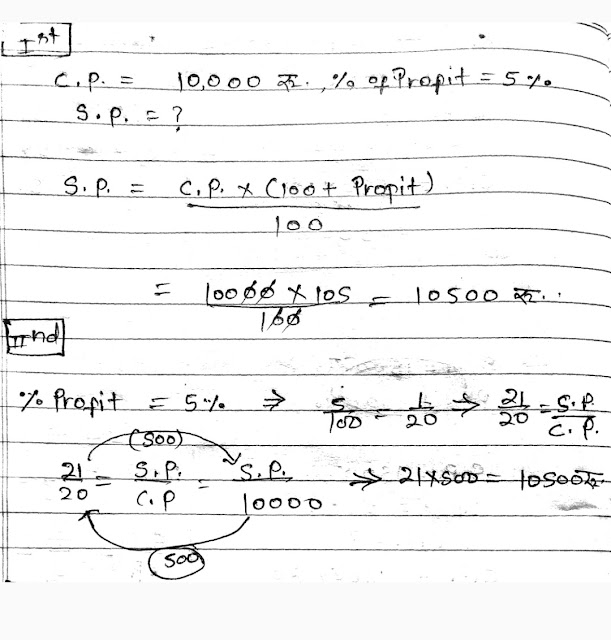 Ist
C.P. = 10,000 रु., % of Propit = 5%
S.P. = ?
S.P. = C.P. x (100+ Propit)
100
= 10000 x 105 = 10500 रु.
100
IInd
% Propit = 5% ⇒ 5/100 = 1/20 ⇒ 21/20 = S.P./C.P.
(500)
21/20 = S.P./C.P = S.P./10000 ⇒ 21x500 = 10500रु
500